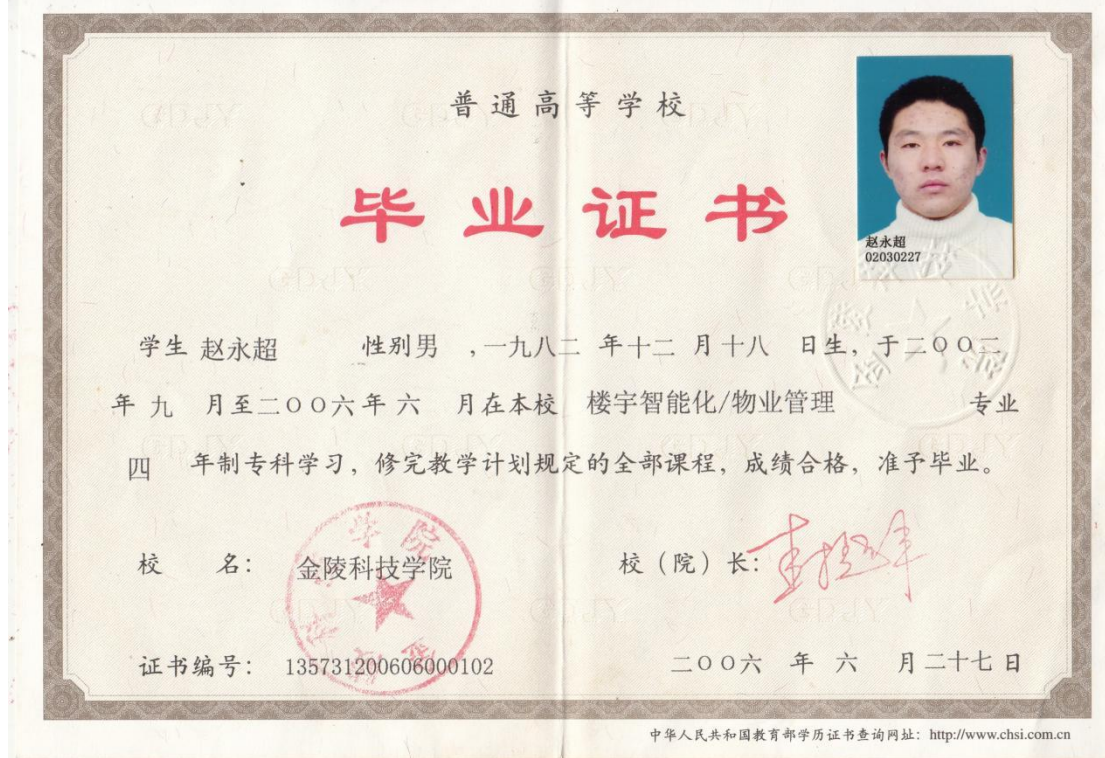 普通高等学校
毕业证书
赵永超
02030227
学生 赵永超 性别男 ,一九八二 年十二 月十八 日生, 于二〇〇二
年 九 月至二〇〇六年 六 月在本校 楼宇智能化/物业管理 专业
四 年制专科学习, 修完教学计划规定的全部课程, 成绩合格, 准予毕业。
校 名: 金陵科技学院
校 (院) 长:
证书编号: 135731200606000102
二〇〇六 年 六 月二十七日
中华人民共和国教育部学历证书查询网址: http://www.chsi.com.cn